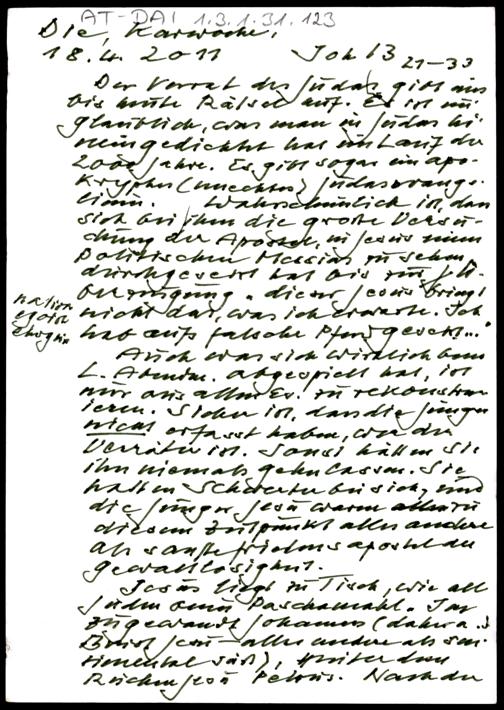 AT-DAI 1.3.1.31.123
Die, Karwoche,
18.4.2011 Joh 13 21-33
Der Verrat des Judas gibt uns
bis heute Rätsel auf. Es ist un
glaublich, was man in Judas hi
neingedichtet hat im Lauf der
2000 Jahre. Es gibt sogar ein apo-
kryphes (unechtes) Judasevange-
lium. Wahrscheinlich ist, dass
sich bei ihm die große Versu-
chung der Apostel, in Jesus einen
politischen Messias zu sehen
durchgesetzt hat bis zur Üb
erzeugung "dieser Jesus bringt
nicht das, was ich erwarte. Ich
hab aufs falsche Pferd gesetzt..."
Auch was sich wirklich beim
L. Abendm. abgespielt hat, ist
nur aus allen Ev. zu rekonstru
ieren. Sicher ist, dass die Jünger
nicht erfasst haben, wer der
Verräter ist. Sonst hätten sie
ihn niemals gehen lassen. Sie
hatten Schwerter bei sich, und
die Jünger Jesu waren allen zu
diesem Zeitpunkt alles andere
als sanfte Friedensapostel der
Gewaltlosigkeit.
Jesus liegt zu Tisch, wie alle
Juden beim Paschamahl. Ihm
zugewandt Johannes (daher a..
Brust Jesu - alles andere als sen-
timental süß), hinter dem
Rücken Jesu Petrus. Nach der